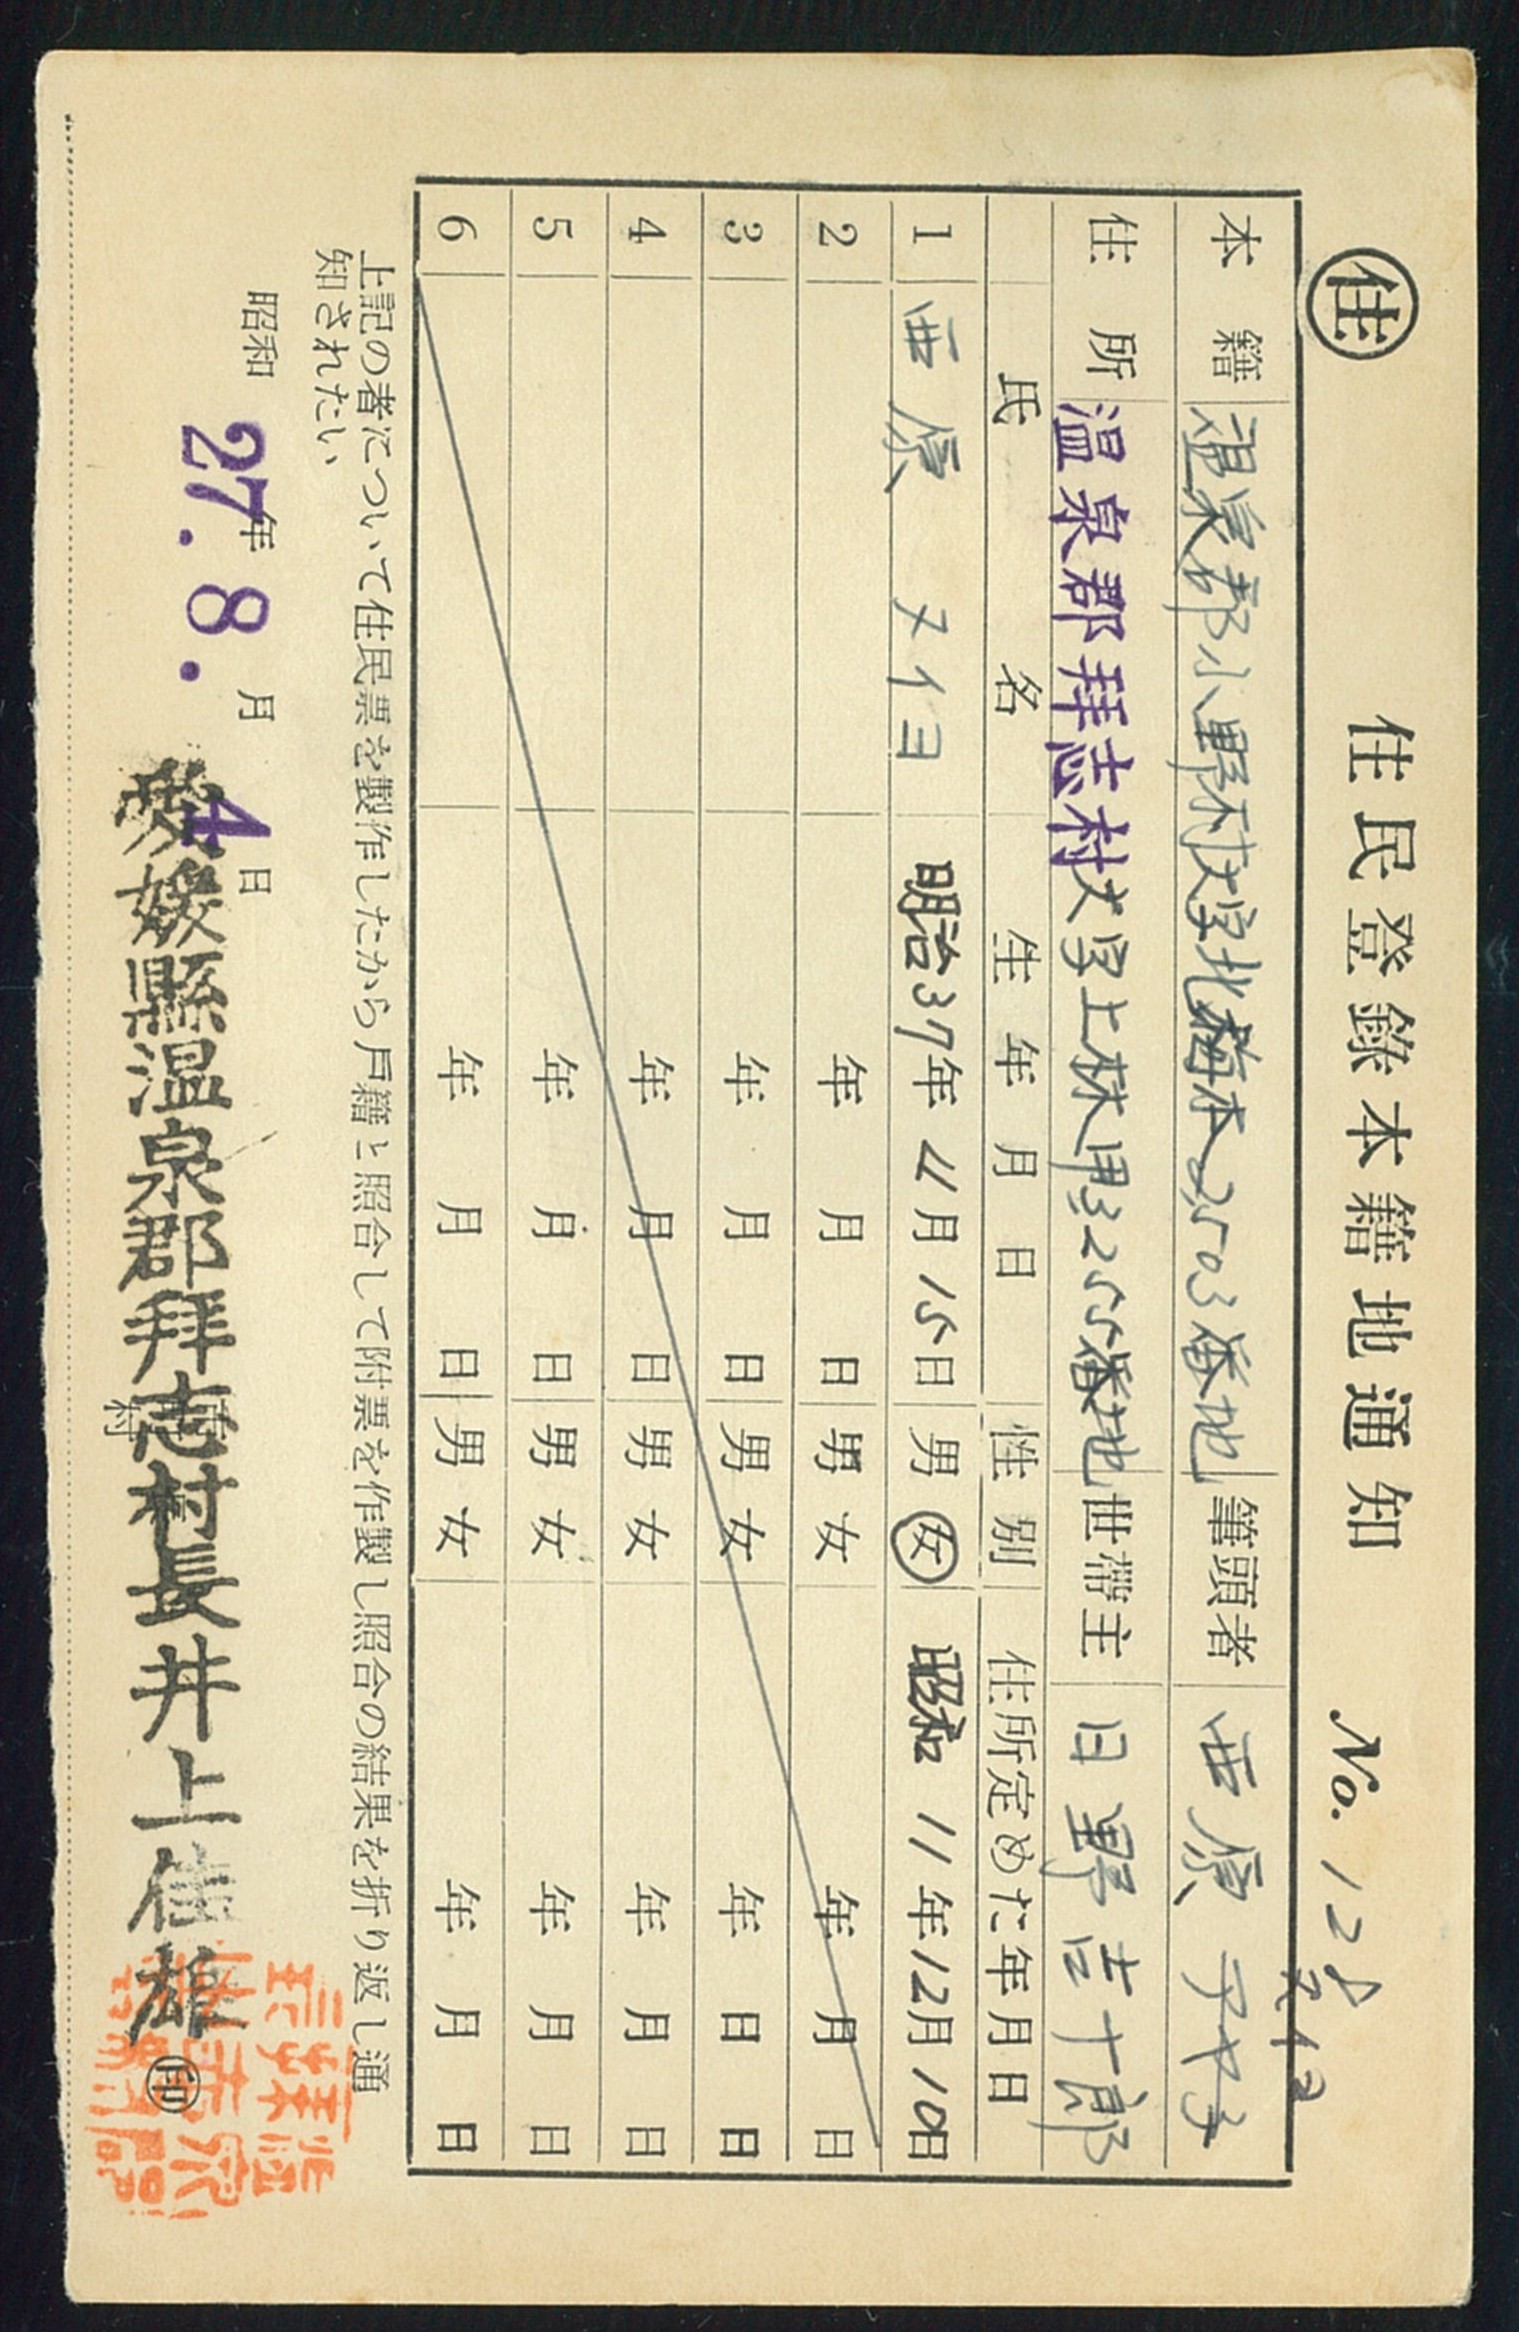 住
住民登錄本籍地通知 No. 128
ヌイヨ
本籍 温泉郡小野村大字北梅本2503番地 筆頭者 西原
住所 温泉郡拝志村大字上林甲3255番地 世帶主 日野吉十郎
氏名 生年月日 性別 住所定めた年月日
1 西原 ヌイヨ 明治37年11月15日 男 女 昭和11年12月10日
2 年 月 日 男 女 年 月 日
3 年 月 日 男 女 年 日 日
4 年 月 日 男 女 年 月 日
5 年 月 日 男 女 年 月 日
6 年 月 日 男 女 年 月 日
上記の者について住民票を製作したから戸籍と照合して附票を作製し照合の結果を折り返し通
知されたい
昭和 27.年 8.月 4日
愛媛縣温泉郡拜志村長井上信雄 印
村